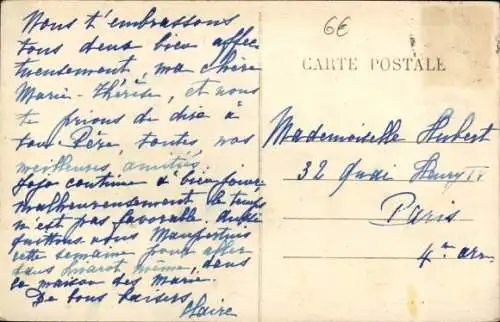 Nous t'embrassons
tous deux bien affec
tueusement, ma chère
Marie-Thérèse, et nous
te prions de dire à
ton Père, toutes nos
meilleures amitiés.
Jojo continue à bien
malheureusement le temps
n'est pas favorable. Aussi
quittons nous
cette semaine pour aller
dans même, dans
la maison des Marie.
De bons baisers
Claire
6€
CARTE POSTALE
Mademoiselle Hubert
32 Quai Henry IV
Paris
4e arr.